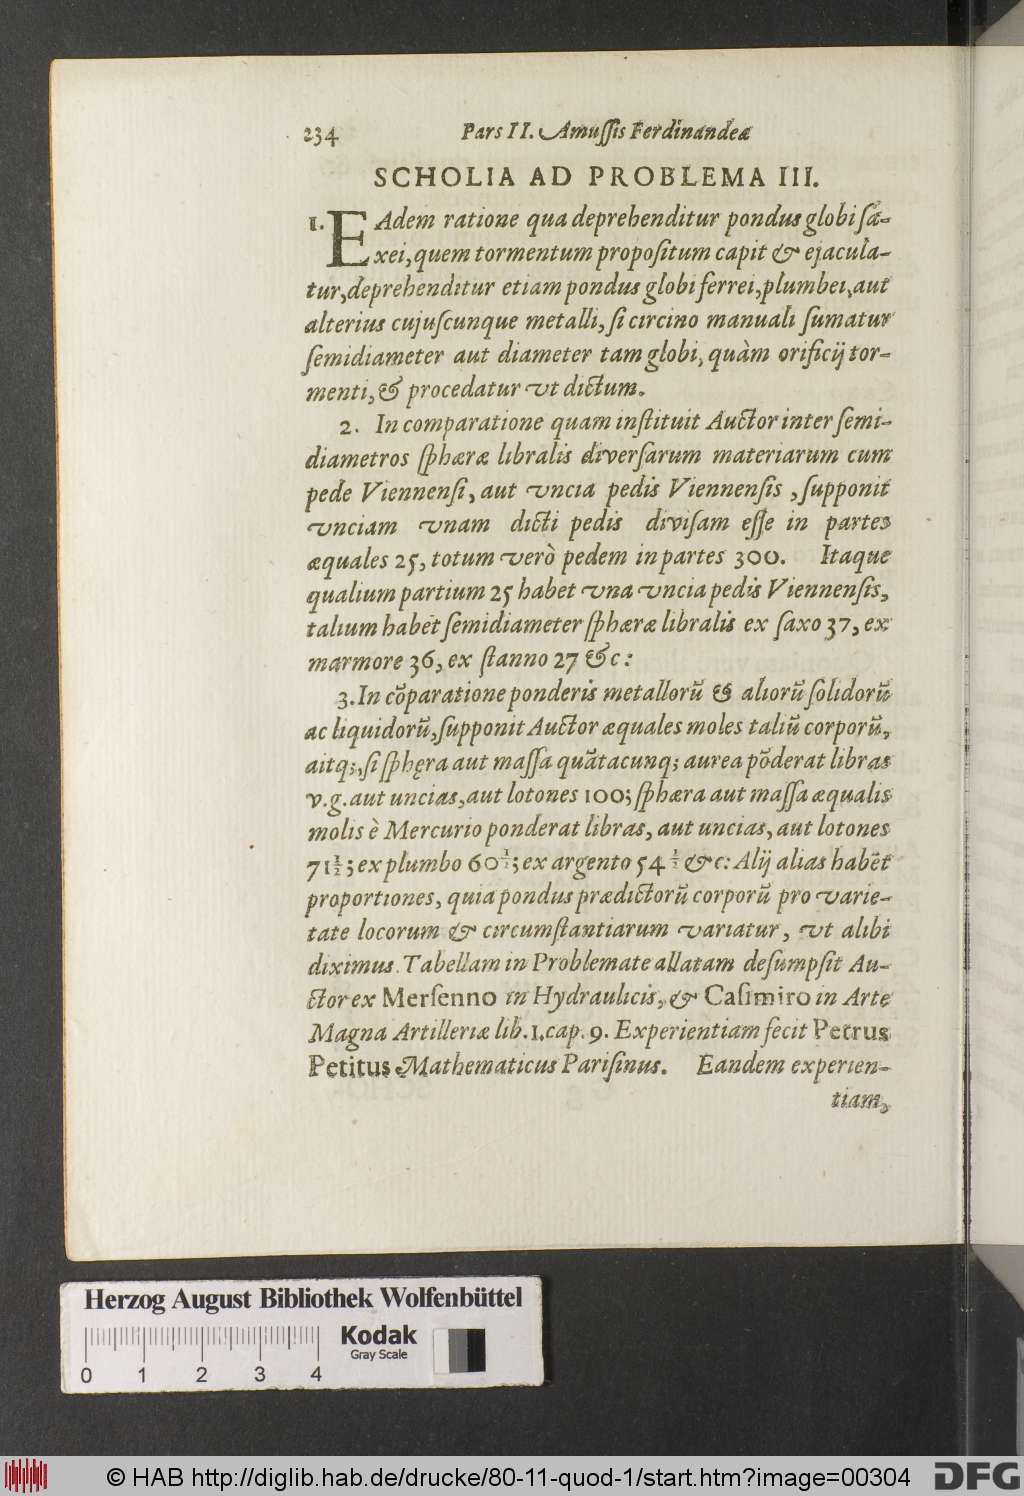 234 Pars II. Amuſſis Ferdinandeæ
SCHOLIA AD PROBLEMA III.
1. EAdem ratione qua deprehenditur pondus globi ſa-
xei, quem tormentum propoſitum capit & ejacula-
tur, deprehenditur etiam pondus globi ferrei, plumbei, aut
alterius cujuſcunque metalli, ſi circino manuali ſumatur
ſemidiameter aut diameter tam globi, quàm orificij tor-
menti, & procedatur vt dictum.
2. In comparatione quam inſtituit Auctor inter ſemi-
diametros ſphæræ libralis diverſarum materiarum cum
pede Viennenſi, aut vncia pedis Viennenſis, ſupponit
vnciam vnam dicti pedis diviſam eſſe in partes
æquales 25, totum verò pedem in partes 300. Itaque
qualium partium 25 habet vna vncia pedis Viennenſis,
talium habet ſemidiameter ſphæræ libralis ex ſaxo 37, ex
marmore 36, ex ſtanno 27 &c:
3. In cõparatione ponderis metallorũ & aliorũ ſolidorũ
ac liquidorũ, ſupponit Auctor æquales moles taliũ corporũ,
aitq;, ſi ſphęra aut maſſa quãtacunq; aurea põderat libras
v.g. aut uncias, aut lotones 100; ſphæra aut maſſa æqualis
molis è Mercurio ponderat libras, aut uncias, aut lotones
71½; ex plumbo 60½; ex argento 54½ &c: Alij alias habẽt
proportiones, quia pondus prædictorũ corporũ pro varie-
tate locorum & circumſtantiarum variatur, vt alibi
diximus. Tabellam in Problemate allatam deſumpſit Au-
ctor ex Merſenno in Hydraulicis, & Caſimiro in Arte
Magna Artilleriæ lib. 1. cap. 9. Experientiam fecit Petrus
Petitus Mathematicus Pariſinus. Eandem experien-
tiam,
Herzog August Bibliothek Wolfenbüttel
Kodak
Gray Scale
0 1 2 3 4
© HAB http://diglib.hab.de/drucke/80-11-quod-1/start.htm?image=00304
DFG